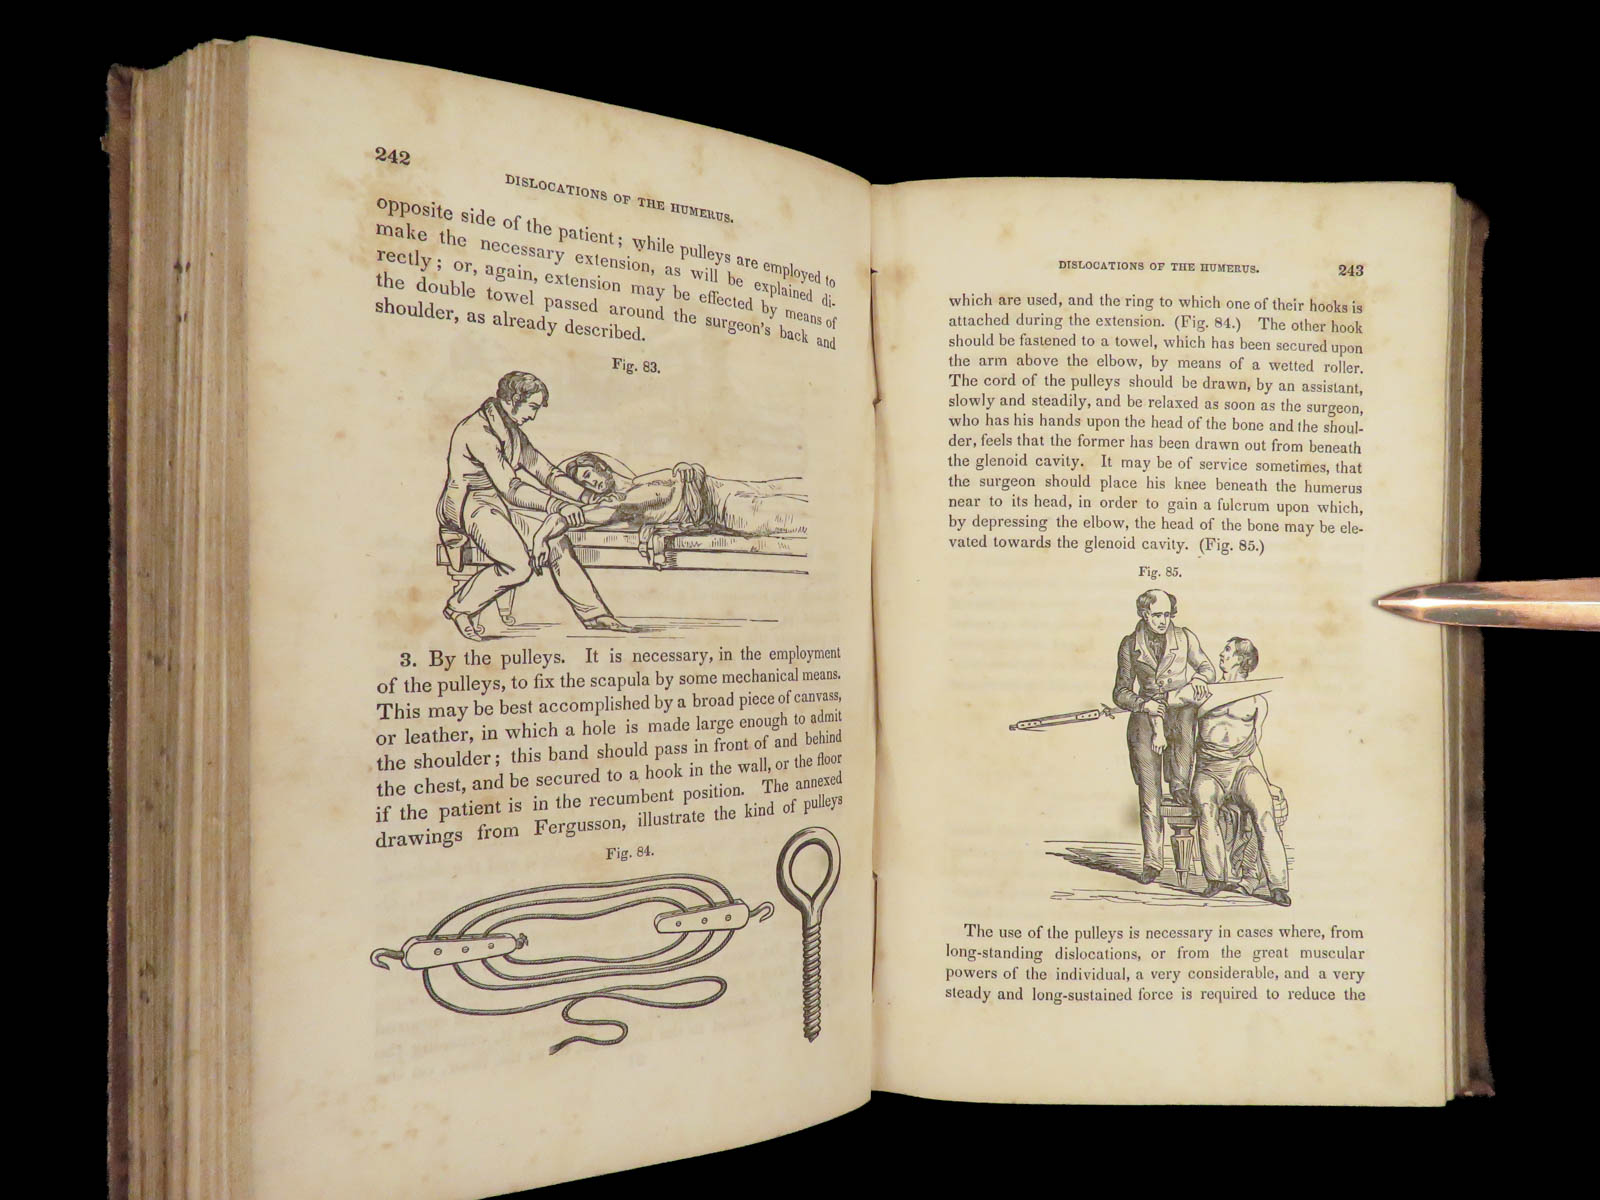 242
DISLOCATIONS OF THE HUMERUS.
opposite side of the patient; while pulleys are employed to
make the necessary extension, as will be explained di-
rectly; or, again, extension may be effected by means of
the double towel passed around the surgeon's back and
shoulder, as already described.
Fig. 83.
3. By the pulleys. It is necessary, in the employment
of the pulleys, to fix the scapula by some mechanical means.
This may be best accomplished by a broad piece of canvass,
or leather, in which a hole is made large enough to admit
the shoulder; this band should pass in front of and behind
the chest, and be secured to a hook in the wall, or the floor
if the patient is in the recumbent position. The annexed
drawings from Fergusson, illustrate the kind of pulleys
Fig. 84.
DISLOCATIONS OF THE HUMERUS. 243
which are used, and the ring to which one of their hooks is
attached during the extension. (Fig. 84.) The other hook
should be fastened to a towel, which has been secured upon
the arm above the elbow, by means of a wetted roller.
The cord of the pulleys should be drawn, by an assistant,
slowly and steadily, and be relaxed as soon as the surgeon,
who has his hands upon the head of the bone and the shoul-
der, feels that the former has been drawn out from beneath
the glenoid cavity. It may be of service sometimes, that
the surgeon should place his knee beneath the humerus
near to its head, in order to gain a fulcrum upon which,
by depressing the elbow, the head of the bone may be ele-
vated towards the glenoid cavity. (Fig. 85.)
Fig. 85.
The use of the pulleys is necessary in cases where, from
long-standing dislocations, or from the great muscular
powers of the individual, a very considerable, and a very
steady and long-sustained force is required to reduce the